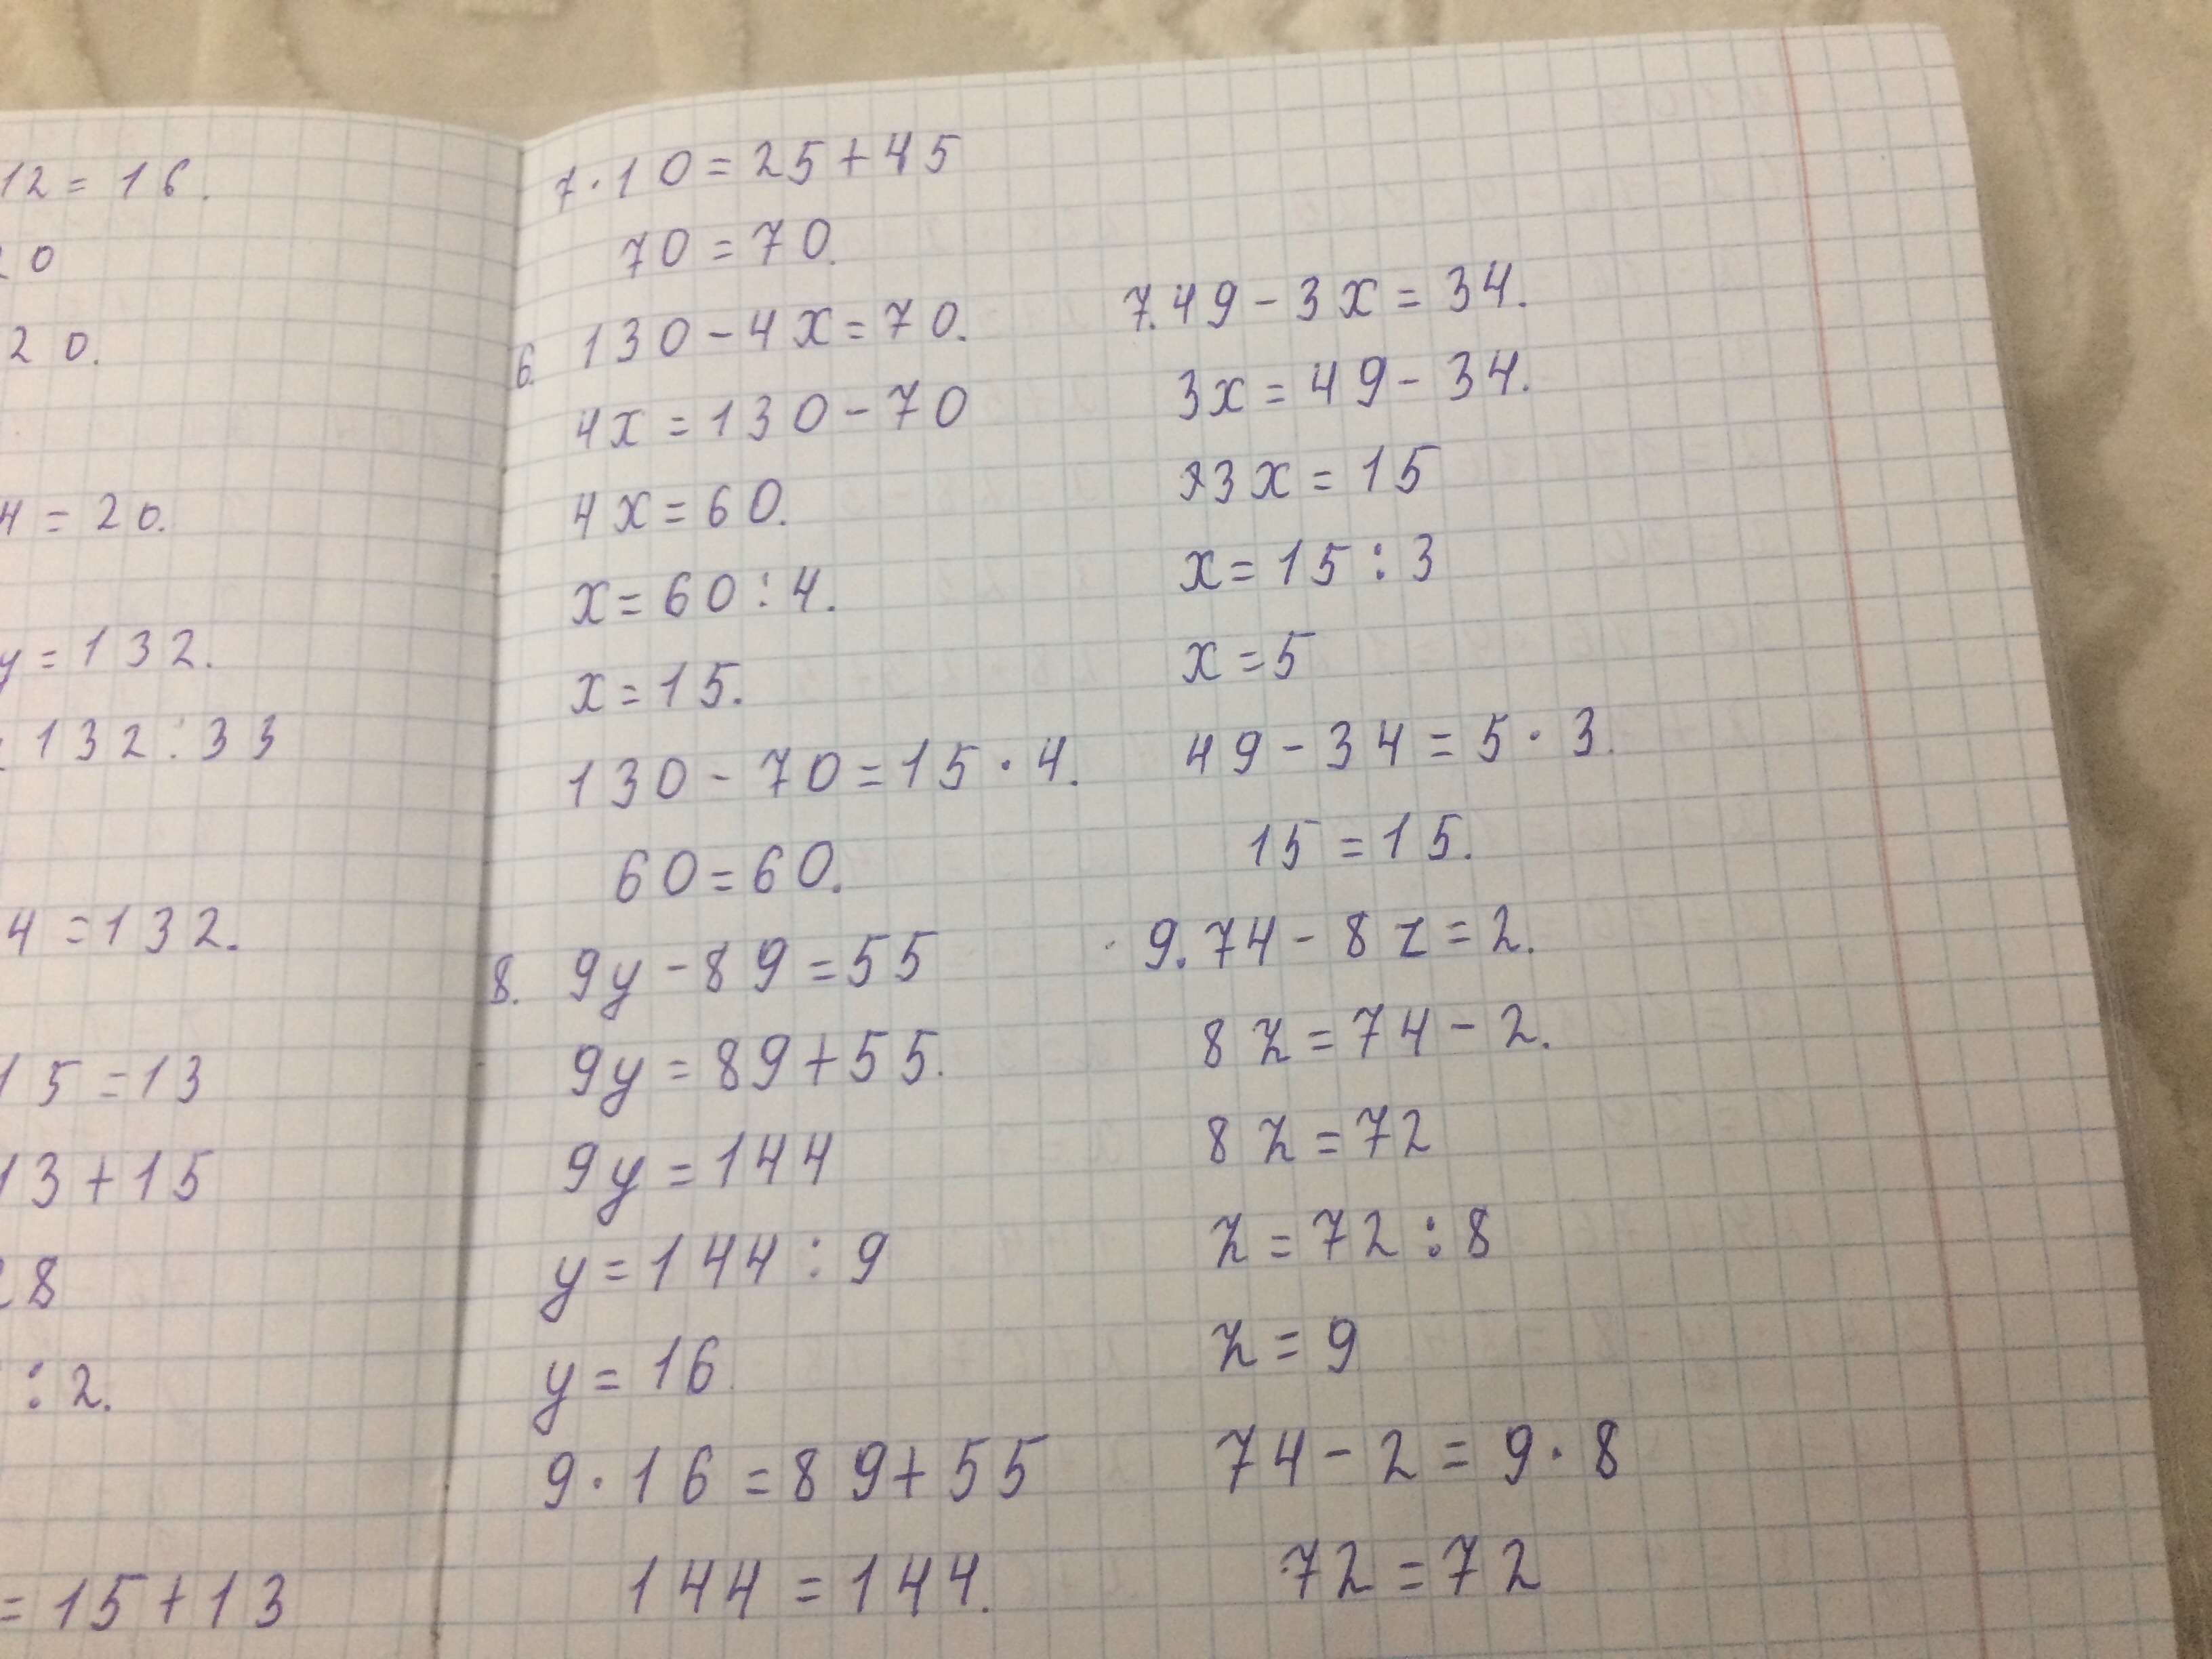 12 = 16.
20
20.
4 = 20.
y = 132.
= 132 : 33
4 = 132.
15 = 13
13 + 15
28
: 2.
= 15 + 13
7 · 10 = 25 + 45
70 = 70.
6. 130 - 4x = 70.
4x = 130 - 70
4x = 60.
x = 60 : 4.
x = 15.
130 - 70 = 15 · 4.
60 = 60.
8. 9y - 89 = 55
9y = 89 + 55.
9y = 144
y = 144 : 9
y = 16.
9 · 16 = 89 + 55
144 = 144.
7. 49 - 3x = 34.
3x = 49 - 34.
3x = 15
x = 15 : 3
x = 5
49 - 34 = 5 · 3.
15 = 15.
9. 74 - 8z = 2.
8z = 74 - 2.
8z = 72
z = 72 : 8
z = 9
74 - 2 = 9 · 8
72 = 72